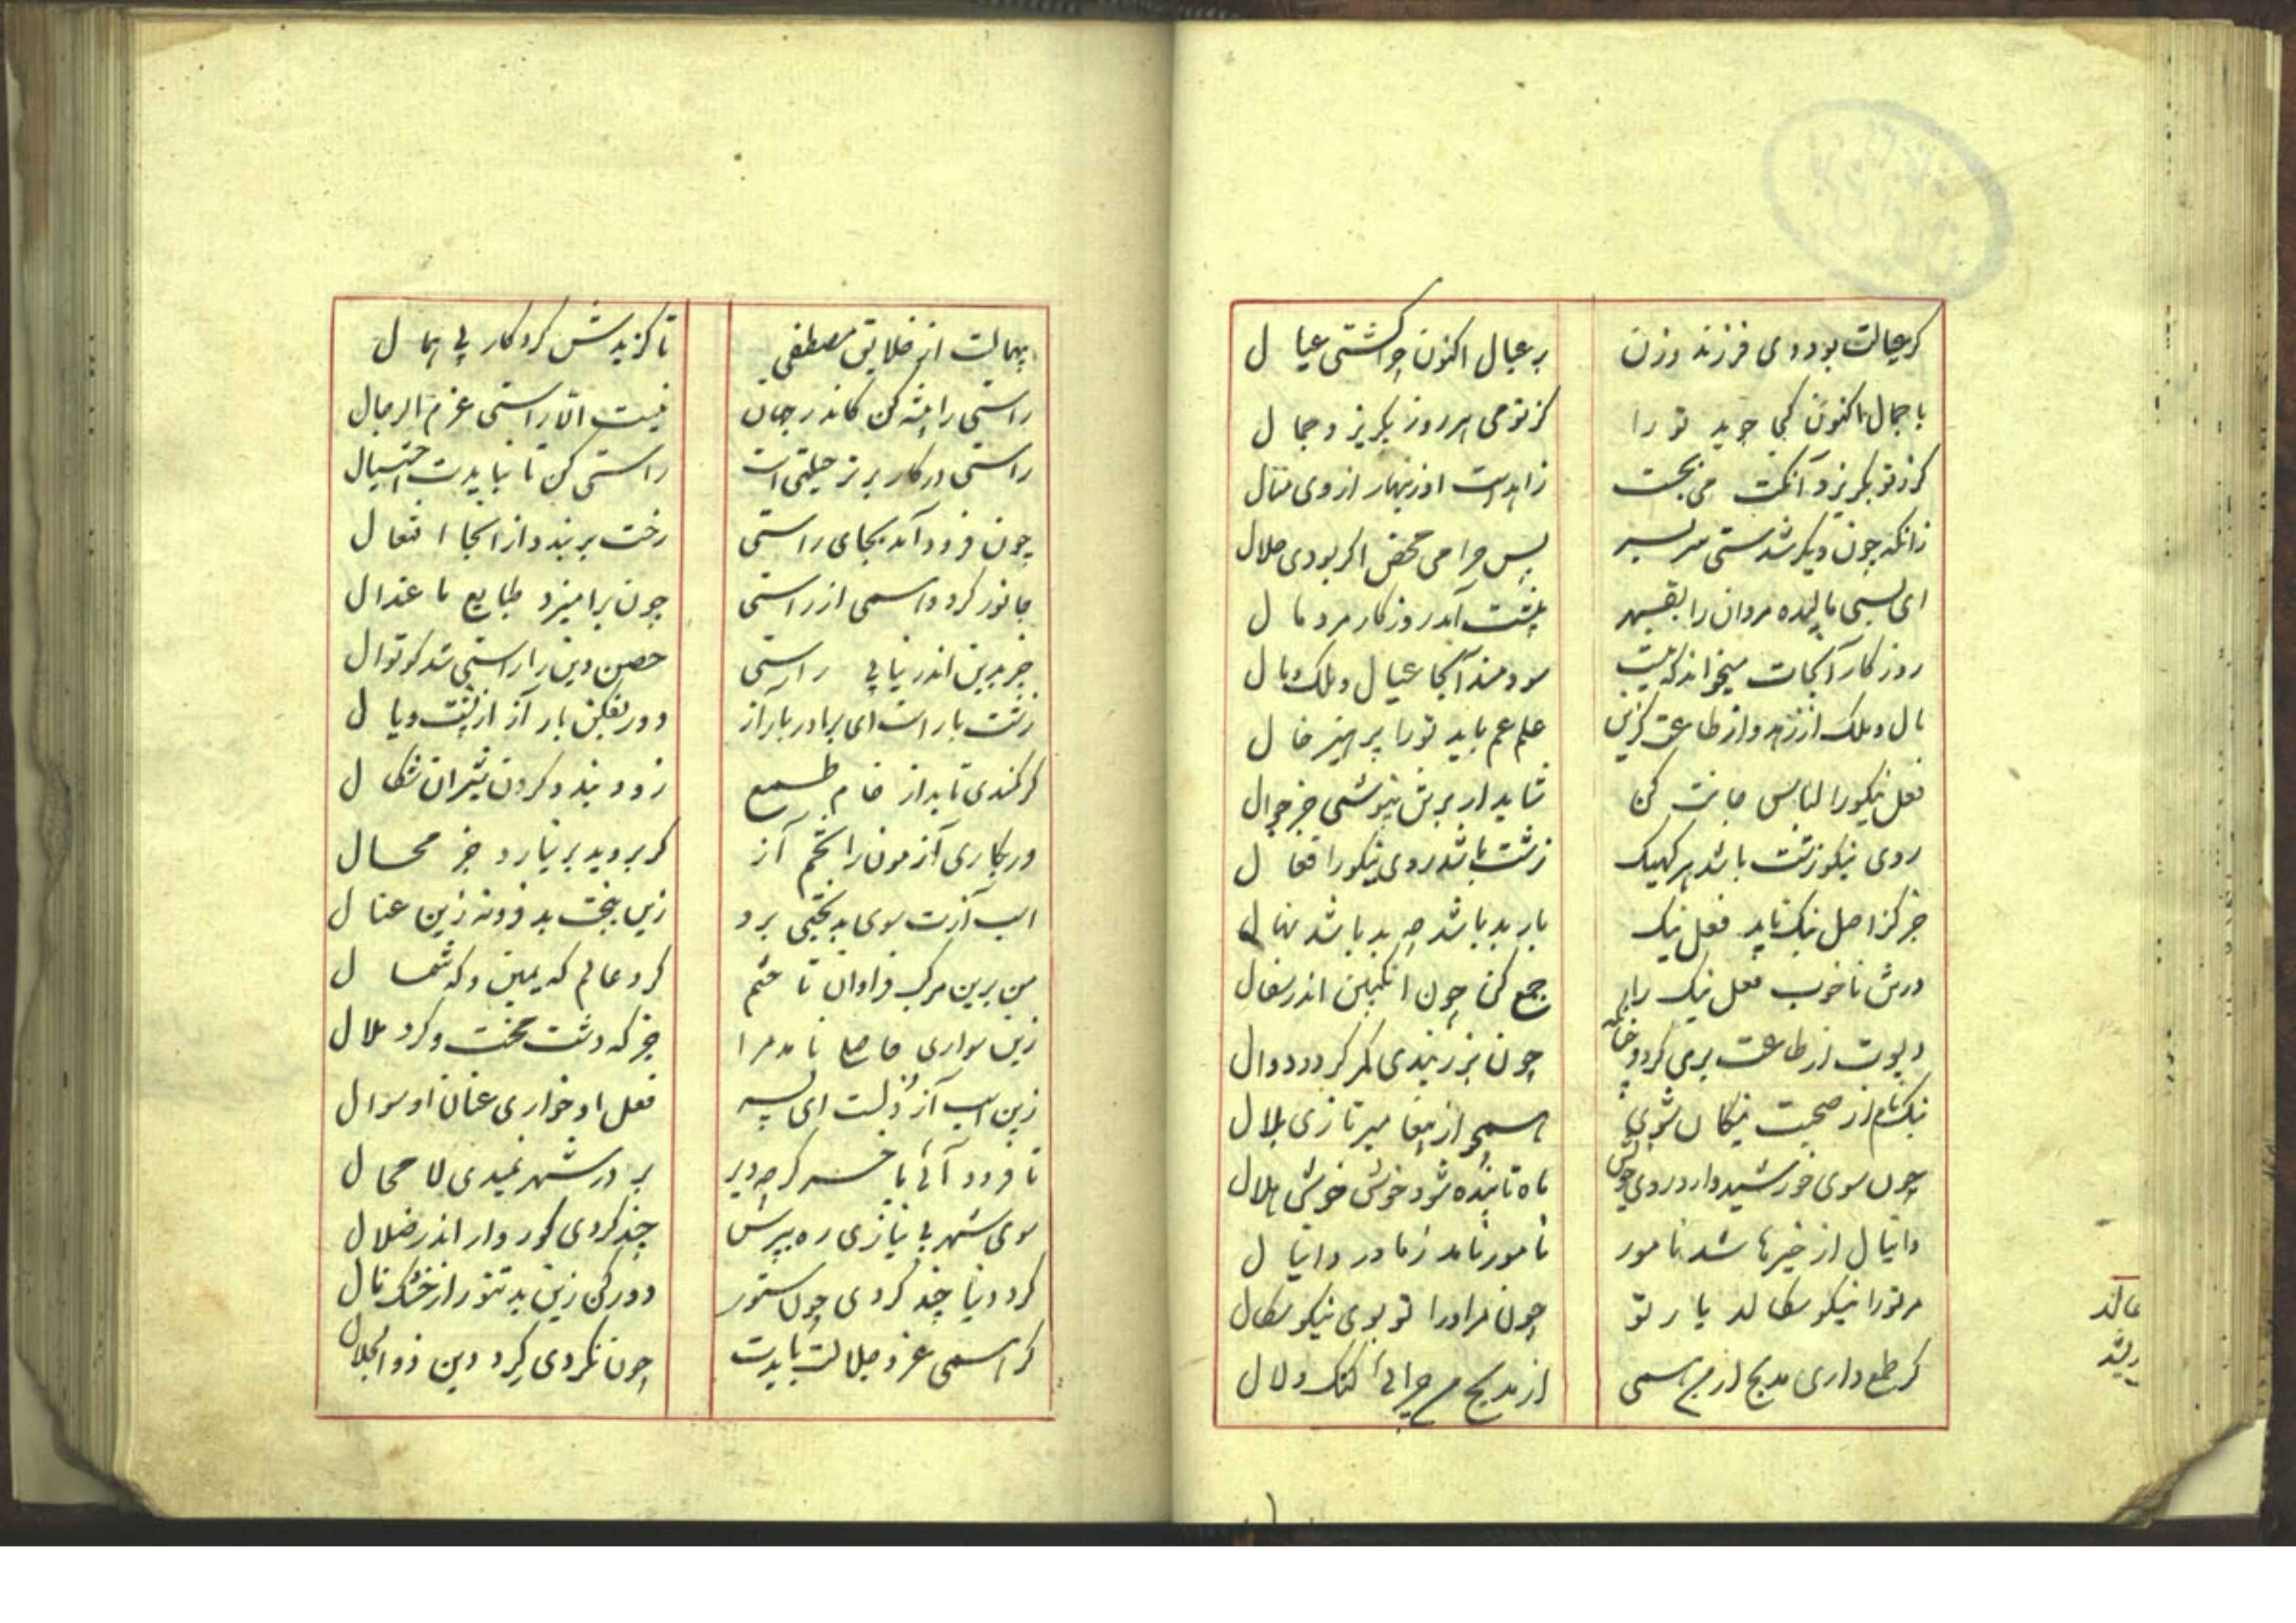 کر عیالت بود وی فرزند و زن
بر عیال اکنون چرا کشتی عیال
با جمال اکنون کی جوید تو را
کز تو می هر روز بگریزد جمال
کز تو بگریزد آنکت می بجست
زاهدست او زینهار از وی منال
زانکه چون دیگر شدستی سر بسر
پس حرامی محض اگر بودی حلال
ای بسی مالیده مردان را بقهر
پیشت آمد روزکار مرد مال
روزکار آنجات میخواند که نیست
سودمند آنجا عیال و ملک و مال
مال و ملک از زهد و از طاعت کزین
علم عم باید تو را پرهیز خال
فعل نیکو را لباس جانت کن
شاید ار بر تن نپوشی جز جوال
روی نیکو زشت باشد هر کهیک
زشت باشد روی نیکو را فعال
جز کز اصل نیک ناید فعل نیک
بار بد باشد چو بد باشد نهال
ورش ناخوب فعل نیک را
جمع کن چون انکبین اندر سفال
دیوت از طاعت پری کردد
چون بزر بندی کمر کردد دوال
نیک نام از صحبت نیکان شوی
همچو از پیغامبر تازی بلال
چون سوی خورشید دارد روی خویش
ماه تابنده شود خوش خوش هلال
دانیال از خیرها شد نامور
نامور نامد ز مادر دانیال
مر تو را نیکو سکالد یار تو
چون مر او را تو بوی نیکو سکال
کر طمع داری مدیح از من همی
از مدیح من چرائی کنک و لال
بیهمالت از خلایق مصطفی
تا کزیدش کردکار بی همال
راستی را پیشه کن کاندر جهان
نیست الا راستی عزم الرجال
راستی در کار برتر حیلتی است
راستی کن تا نبایدت احتیال
چون فرود آمد بجای راستی
رخت بربندد از آنجا افتعال
جانور کردد همی از راستی
چون برآمیزد طبایع با عدال
جز برین اندر نیابی راستی
حصن دین را راستی شد کوتوال
زشت بار است ای برادر بار آز
دور بفکن بار آز از پشت و یال
کر کمندی تابد از خام طمع
زود بندد کردن شیران شکال
ور بکاری آزمون را تخم آز
کر بروید بر نیارد جز محال
اسب آزت سوی بدبختی برد
زین بخت بد فرو نه زین عنال
من برین مرکب فراوان تاختم
کرد عالم که یمین و که شمال
زین سواری حاصلم نامد مرا
جز که دشت محنت و کرد ملال
زین اسب آز ذلست ای پسر
فعل او خواری عنان او سوال
تا فرود آئی بآخر کرچه دیر
بر در شهر نمیدی لا محال
سوی شهر بی نیازی ره بپرس
چند کردی کوروار اندر ضلال
کرد دنیا چند کردی چون ستور
دور کن زین بدتنور از خشک نال
کر همی عز و جلالت بایدت
چون نکردی کرد دین ذو الجلال